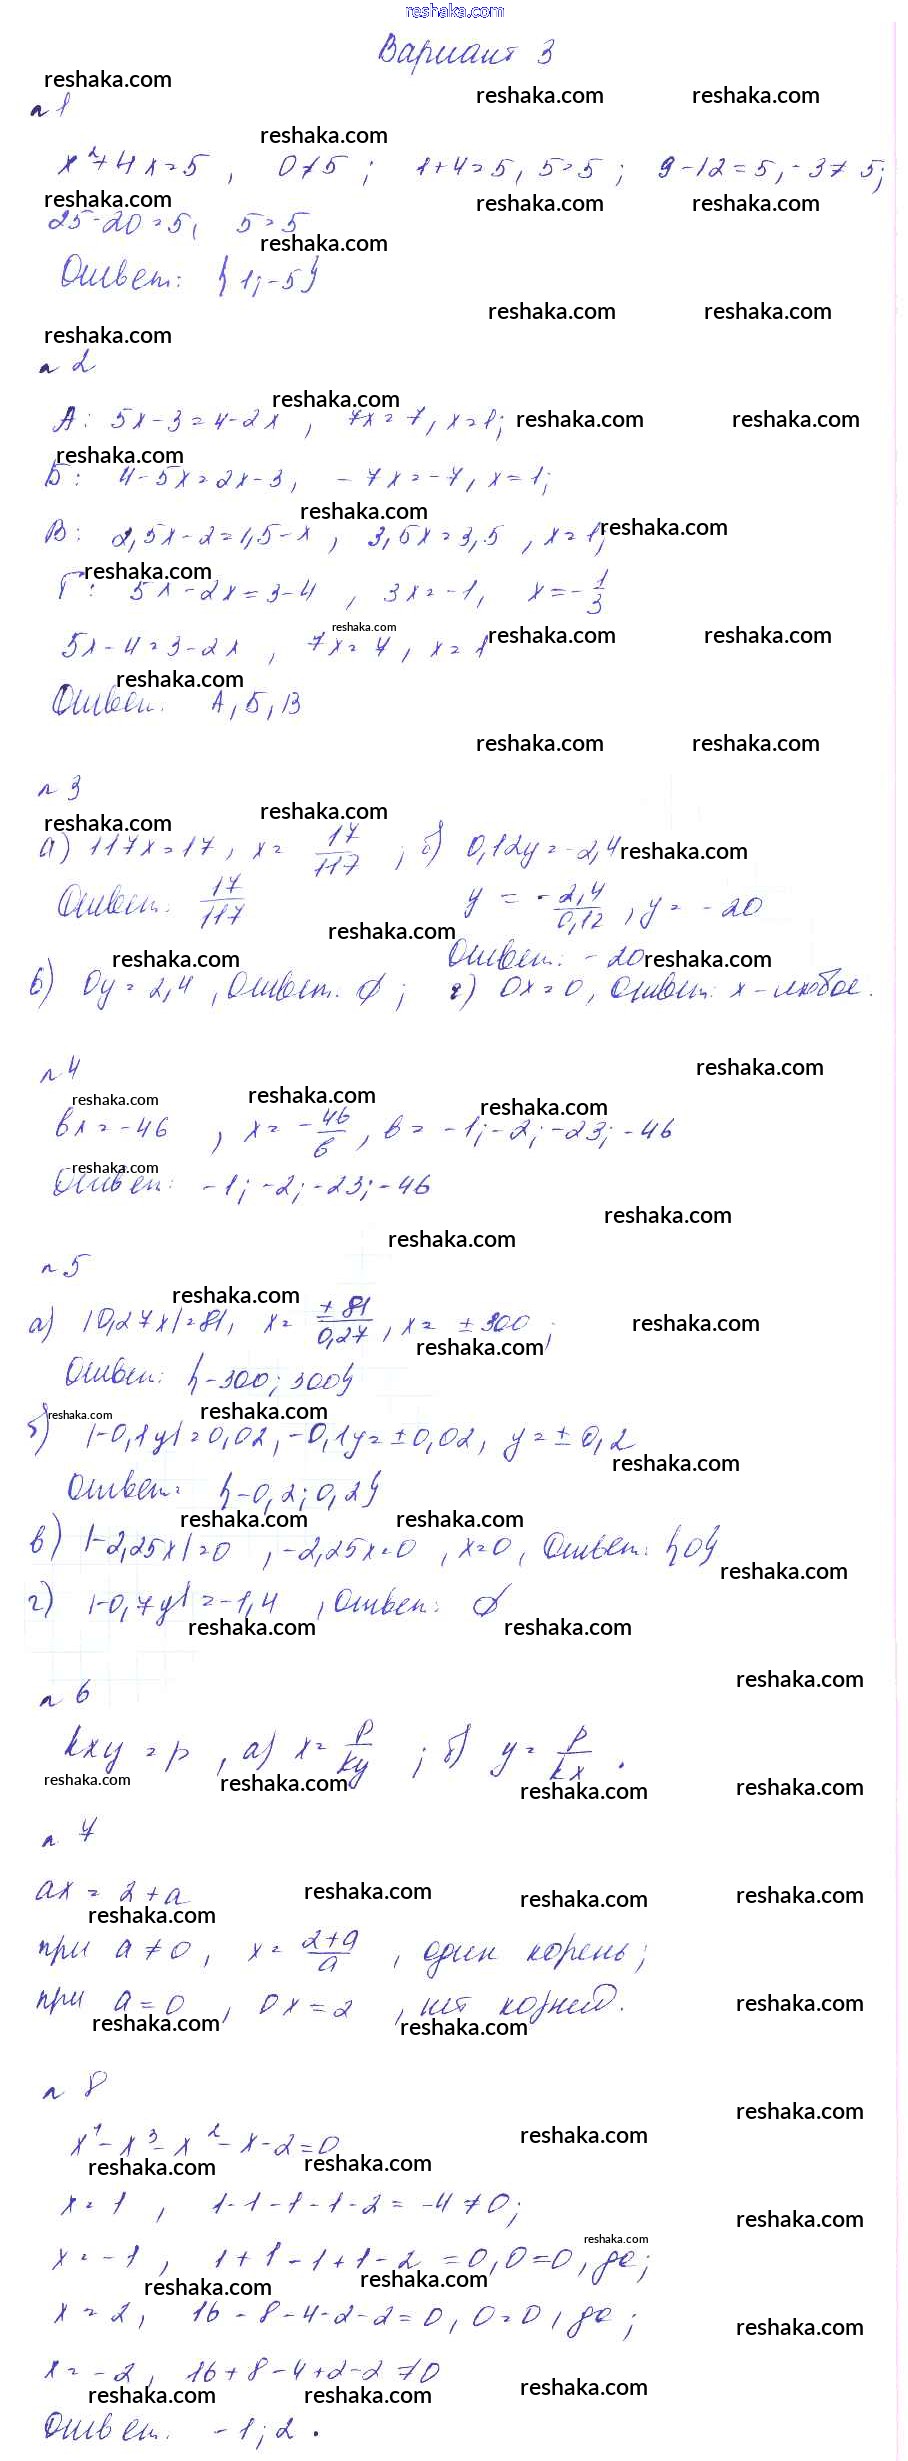 reshaka.com
Вариант 3
reshaka.com
reshaka.com reshaka.com
№1
reshaka.com
x²+4x=5, 0≠5; 1+4=5, 5=5; 9-12=5, -3≠5;
reshaka.com reshaka.com reshaka.com
25-20=5, 5=5
reshaka.com
Ответ: {1;-5}
reshaka.com reshaka.com
reshaka.com
№2
reshaka.com
А: 5x-3=4-2x, 7x=7, x=1; reshaka.com reshaka.com
reshaka.com
Б: 4-5x=2x-3, -7x=-7, x=1;
reshaka.com
В: 2,5x-2=1,5-x, 3,5x=3,5, x=1; reshaka.com
reshaka.com
Г: 5x-2x=3-4, 3x=-1, x=-1/3
reshaka.com
5x-4=3-2x, 7x=7, x=1 reshaka.com reshaka.com
reshaka.com
Ответ: А, Б, В
reshaka.com reshaka.com
№3
reshaka.com reshaka.com
а) 117x=17, x= 17/117; б) 0,12y=-2,4 reshaka.com
Ответ: 17/117 y = -2,4/0,12, y= -20
reshaka.com
Ответ: -20 reshaka.com
reshaka.com
в) 0y=2,4, Ответ: ∅; г) 0x=0, Ответ: x-любое.
№4
reshaka.com
reshaka.com reshaka.com reshaka.com
bx=-46, x= -46/b, b= -1; -2; -23; -46
reshaka.com
Ответ: -1; -2; -23; -46
reshaka.com
reshaka.com
№5
reshaka.com
а) |0,27x|=81, x= ±81/0,27, x= ±300; reshaka.com
reshaka.com
Ответ: {-300; 300}
reshaka.com reshaka.com
б) |-0,1y|=0,02, -0,1y=±0,02, y=±0,2
reshaka.com
Ответ: {-0,2; 0,2}
reshaka.com reshaka.com
в) |-2,25x|=0, -2,25x=0, x=0, Ответ: {0}
reshaka.com
г) |-0,7y|=-1,4, Ответ: ∅
reshaka.com reshaka.com
reshaka.com
№6
kxy=p, а) x= p/ky; б) y= p/kx.
reshaka.com reshaka.com reshaka.com reshaka.com
№7
ax=2+a reshaka.com reshaka.com reshaka.com
reshaka.com
при a≠0, x= 2+a/a, один корень;
при a=0, 0x=2, нет корней. reshaka.com
reshaka.com reshaka.com
№8
reshaka.com
reshaka.com
x⁴-x³-x²-x-2=0
reshaka.com reshaka.com
x=1, 1-1-1-1-2=-4≠0; reshaka.com
reshaka.com
x=-1, 1+1-1+1-2=0, 0=0, да;
reshaka.com reshaka.com
x=2, 16-8-4-2-2=0, 0=0, да; reshaka.com
x=-2, 16+8-4+2-2≠0
reshaka.com reshaka.com reshaka.com
Ответ: -1; 2.